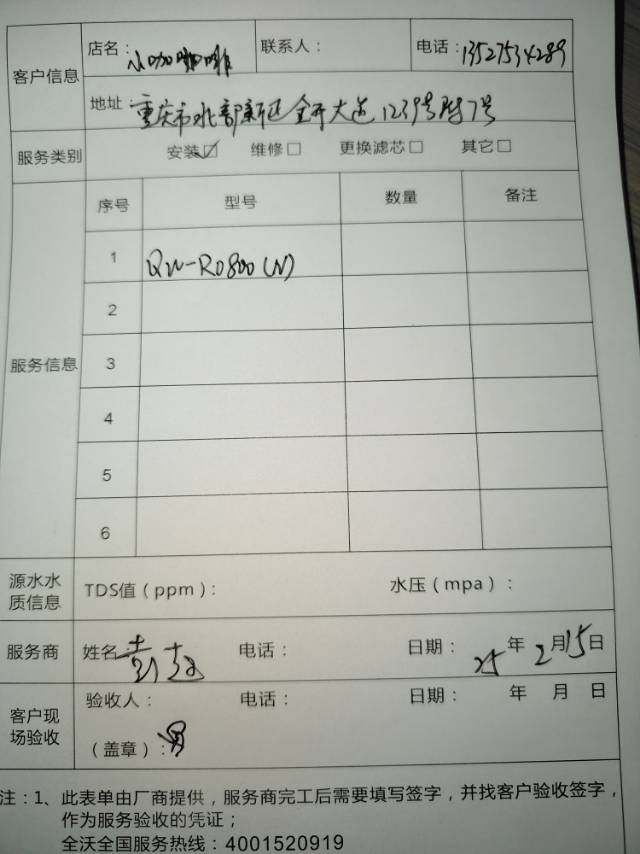 客户信息 店名：小咖咖啡 联系人： 电话：13527534289
地址 重庆市北部新区金开大道1239号附7号
服务类别 安装☑ 维修□ 更换滤芯□ 其它□
服务信息 序号 型号 数量 备注
1 QW-RO800(N)
2
3
4
5
6
源水水质信息 TDS值（ppm）： 水压（mpa）：
服务商 姓名 电话： 日期： 25年2月15日
客户现场验收 验收人： 电话： 日期： 年 月 日
（盖章）：
注：1、此表单由厂商提供，服务商完工后需要填写签字，并找客户验收签字，
作为服务验收的凭证；
全沃全国服务热线：4001520919